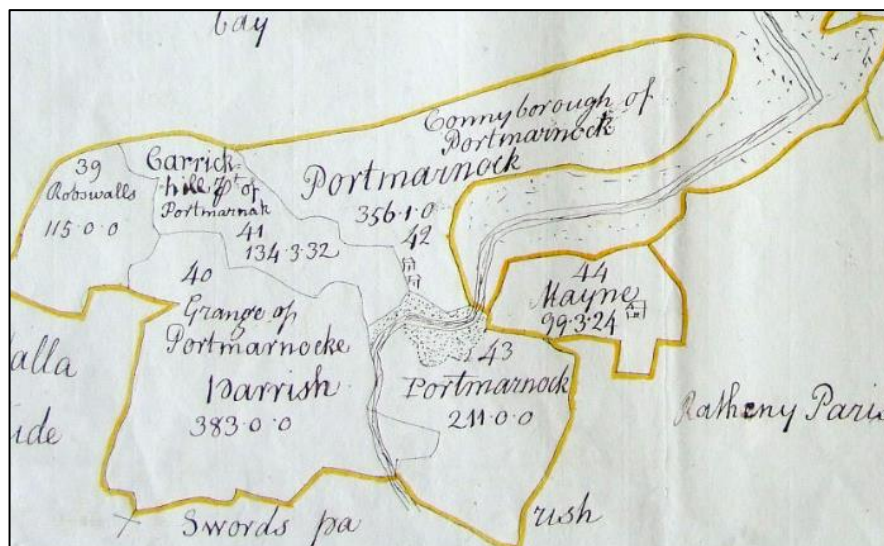 bay
Connyborough of
Portmarnock
39
Robswalls
115·0·0
Carrick
hill pt of
Portmarnak
41
134·3·32
Portmarnock
356·1·0
42
40
Grange of
Portmarnocke
Parrish
383·0·0
44
Mayne
99·3·24
43
Portmarnock
211·0·0
alla
ide
Ratheny Paris
Swords pa
rish